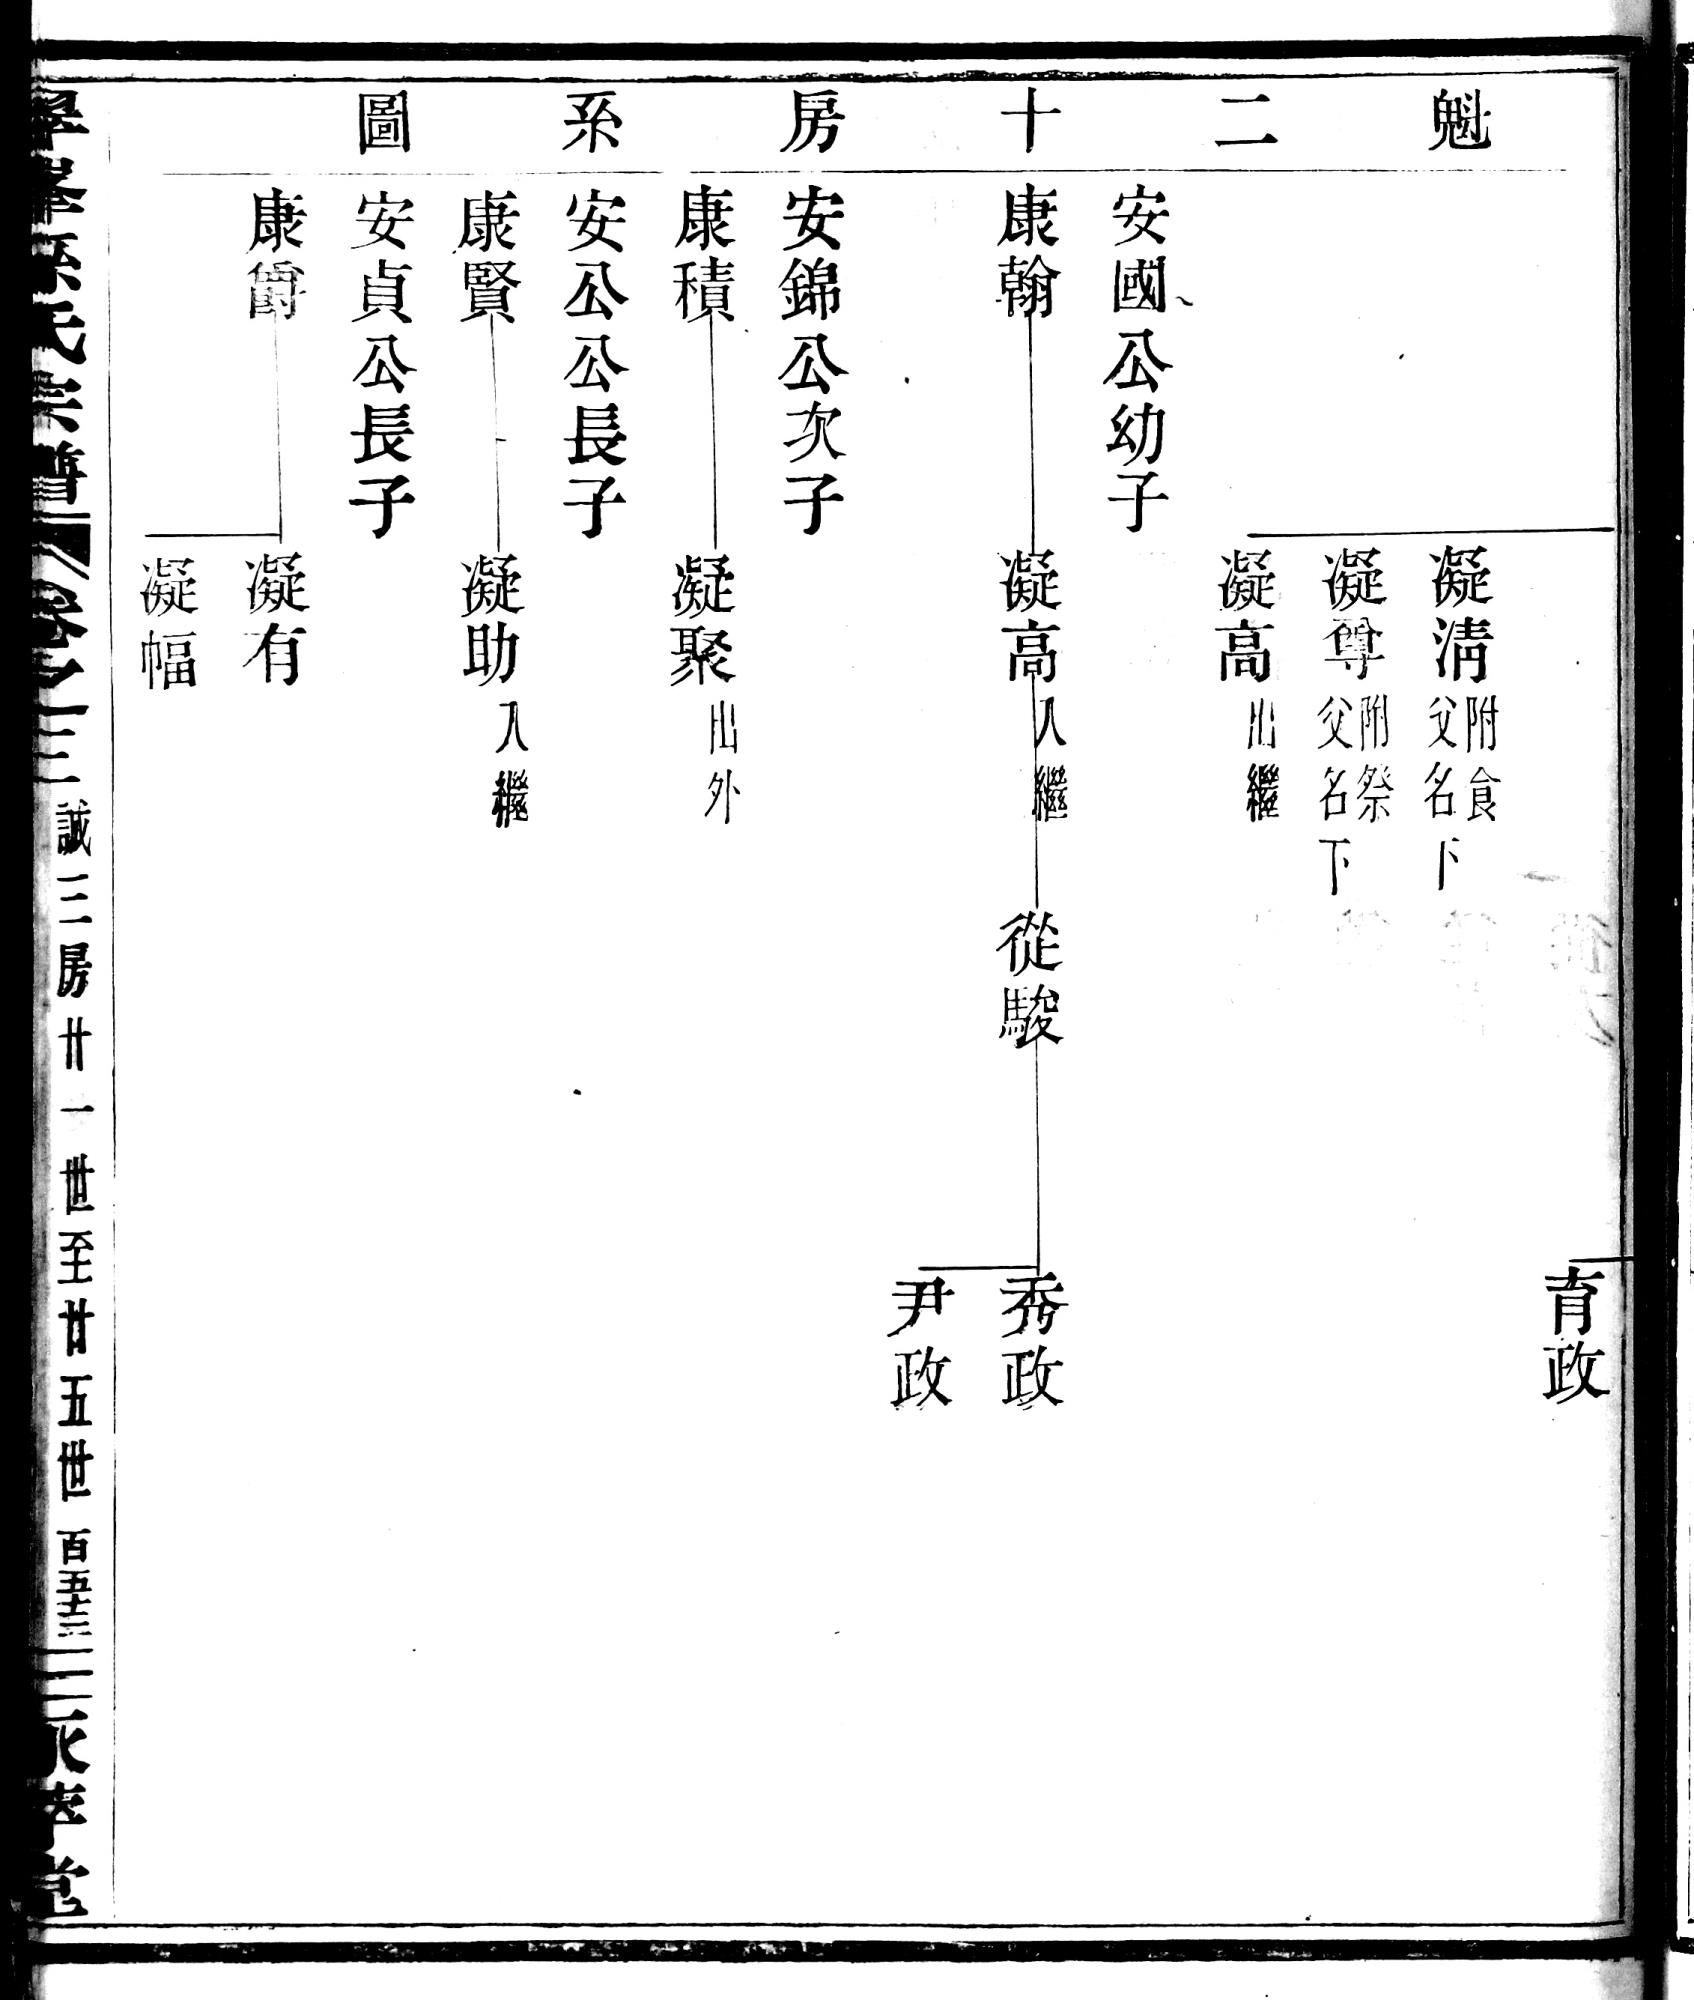 魁二十房系圖
育政
凝淸 附食父名下
凝尊 附祭父名下
凝高 出繼
安國公幼子
康翰 凝高 入繼 從駿 秀政
尹政
安錦公次子
康積 凝聚 出外
安公公長子
康賢 凝助 入繼
安貞公長子
康爵 凝有
凝幅
孫氏宗譜 卷之三 誠三房廿一世至廿五世 百五十三 永孝堂